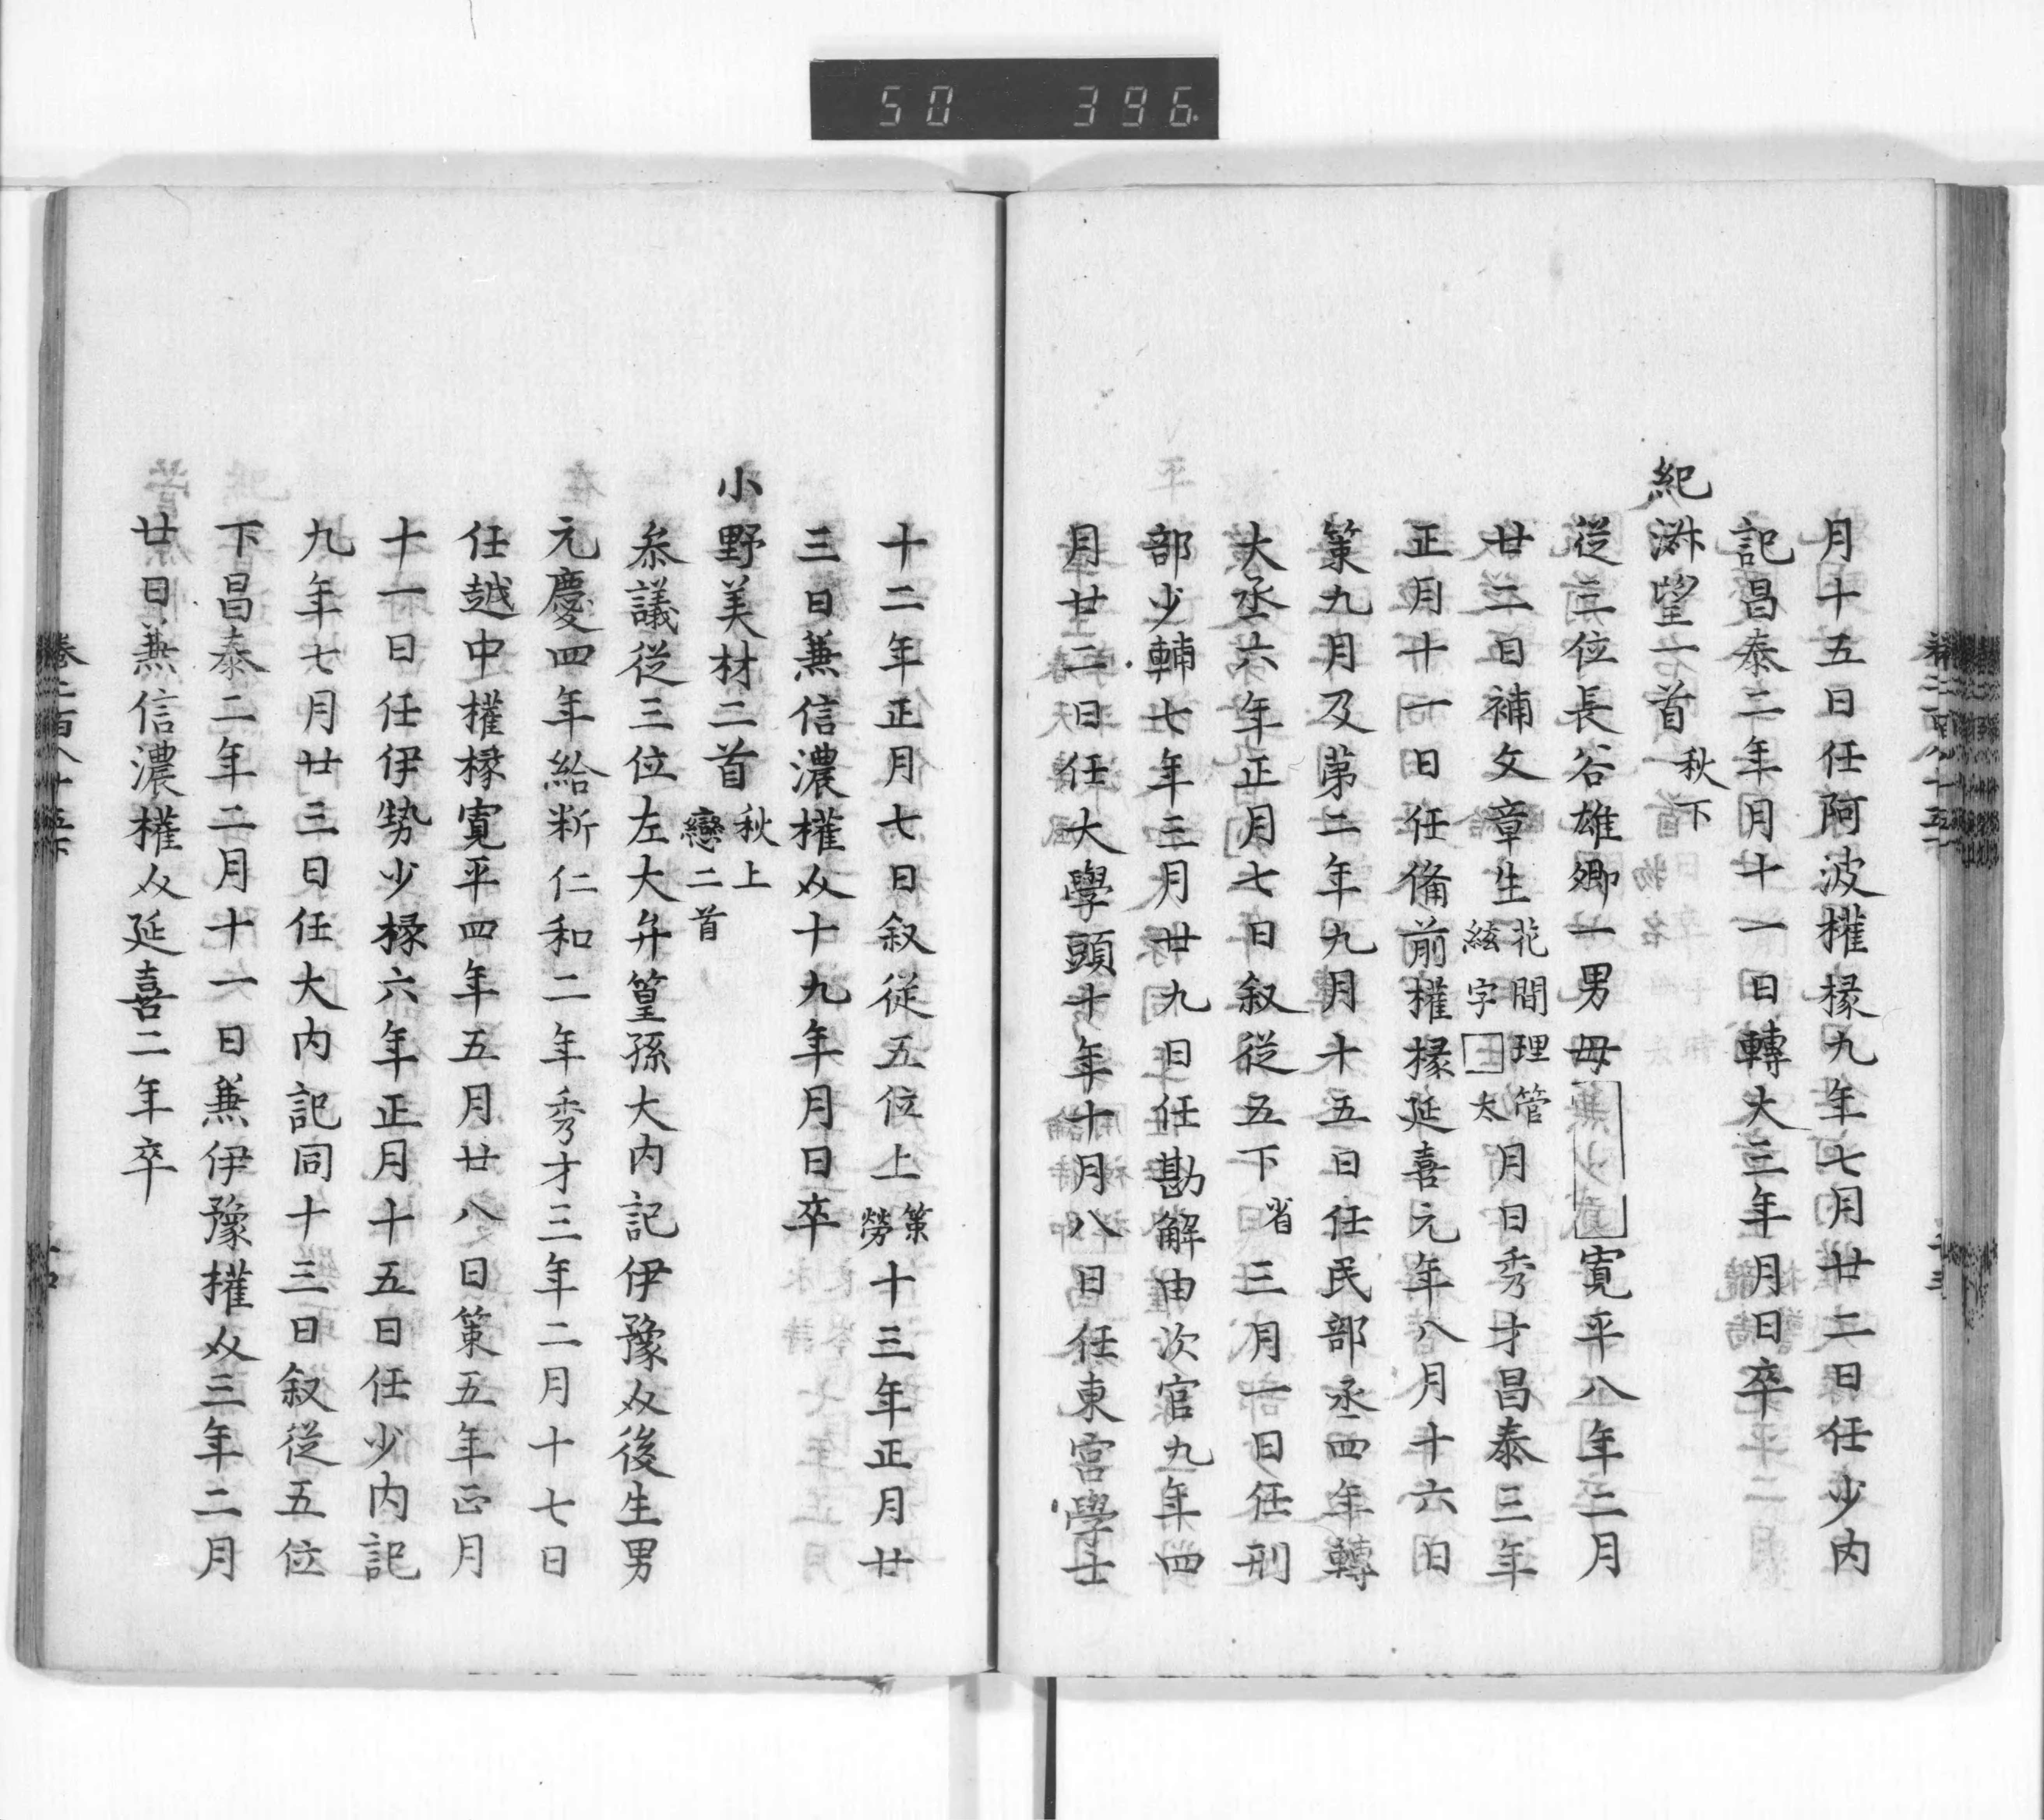 50 396
月十五日任阿波權掾九年七月廿二日任少内
記昌泰二年月十一日轉大三年月日卒
紀淑望一首秋下
從三位長谷雄卿一男母
寛平八年二月
廿二日補文章生
花間理管
絃字□太
月日秀才昌泰三年
正月十一日任備前權掾延喜元年八月十六日
策九月及第二年九月十五日任民部丞四年轉
大丞六年正月七日叙従五下省三月一日任刑
部少輔七年三月廿九日任勘解由次官九年四
月廿二日任大學頭十年十月八日任東宮學士
十二年正月七日叙従五位上
策
勞
十三年正月廿
三日兼信濃權从十九年月日卒
小野美材二首
秋上
戀二首
叅議従三位左大弁篁孫大内記伊豫从後生男
元慶四年給断仁和二年秀才三年二月十七日
任越中權掾寛平四年五月廿八日策五年正月
十一日任伊勢少掾六年正月十五日任少内記
九年七月廿三日任大内記同十三日叙従五位
下昌泰二年二月十一日兼伊豫權从三年二月
廿日兼信濃權从延喜二年卒
卷二百八十五下